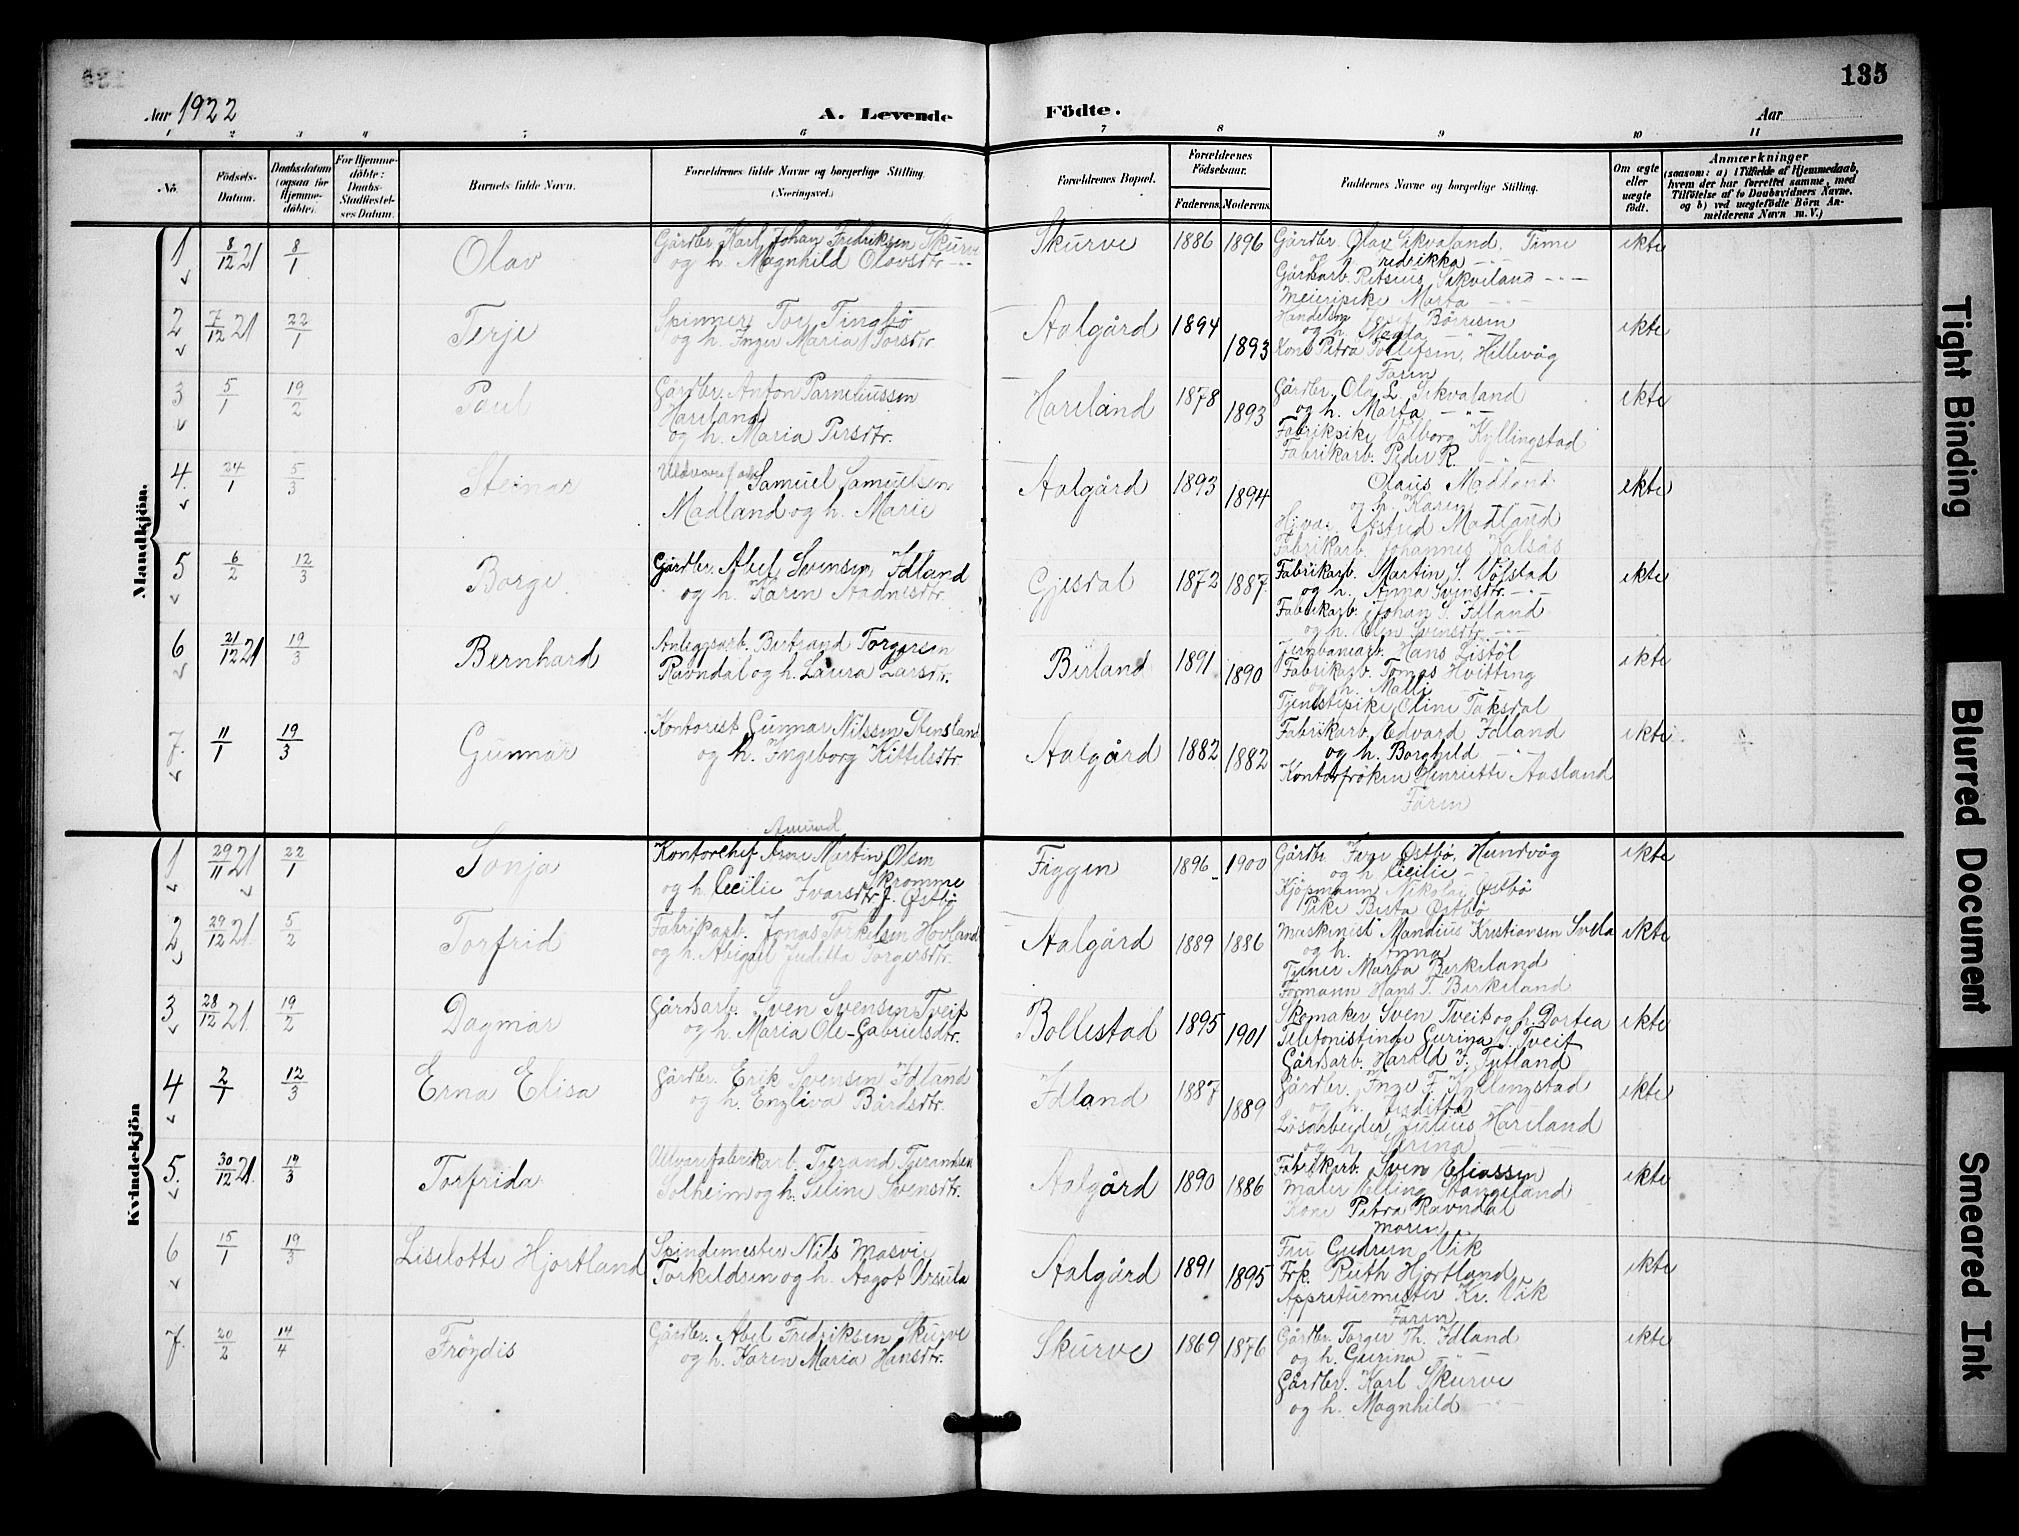 135
Aar 1922
A. Levende Födte.
Aar
1 2 3 4 5 6 7 8 9 10 11
No.
Födsels-Datum.
Daabsdatum (ogsaa for Hjemmedöbte).
For Hjemmedöbte: Daabs-Stadfæstelses Datum.
Barnets fulde Navn.
Forældrenes fulde Navne og borgerlige Stilling. (Næringsvei.)
Forældrenes Bopæl.
Forældrenes Födselsaar.
Faderens. Moderens.
Faddernes Navne og borgerlige Stilling.
Om ægte eller uægte födt.
Anmærkninger
(saasom: a) i Tilfælde af Hjemmedaab, hvem der har forrettet samme, med Tilföielse af to Daabsvidners Navne. og b) ved uægtefödte Börn Anmelderens Navn m. V.)
Mandkjön.
1 8/12 21 8/1 Olav
Gårdbr. Karl Johan Fredriksen Skurve
og h. Magnhild Olavsdtr.
Skurve 1886 1896
Gårdbr. Olav Sikvaland, Time
Gårdsarb. Sikveland
Meieripike Marta
ekte
2 7/12 21 22/1 Terje
Spinner Tor Tingbø
og h. Inger Maria Torsdtr.
Aalgård 1894 1893
Josef Børresen
og h. Magda
Kone Petra Tollefsen, Hillevåg
Faren
ekte
3 5/1 19/2 Paul
Gårdbr. Anton Parneliussen
Hariland
og h. Maria Persdtr.
Hariland 1878 1893
Gårdbr. Ola L. Sikvaland
og h. Marta
Fabrikpike Valborg Kyllingstad
Fabrikarb. Peder R.
ekte
4. 24/1 5/3 Steinar
Samuel Samuelsen
Madland og h. Marie
Aalgård 1893 1894
Olaus Madland
og h. Karen
Astrid Madland
Fabrikarb. Johannes Kalsås
ekte
5 6/2 12/3 Borge
Gårdbr. Abel Svensen Idland
og h. Karen Aadnesdtr.
Gjesdal 1872 1887
Fabrikarb. Martin S. Ølstad
og h. Anna Svensdtr.
Fabrikarb. Johan S. Idland
og h. Elen Svensdtr.
ekte
6 21/12 21 19/3 Bernhard
Anleggsarb. Bertrand Torgersen
Ravndal og h. Laura Larsdtr.
Berland 1891 1890
Jernbanearb. Hans Listøl
Fabrikarb. Tomas Hvitting
og h. Malli
Tjenestepike Oline Taksdal
ekte
7. 11/1 19/3 Gunnar
Kontorist Gunnar Nilssen Stensland
og h. Ingeborg Kittelsdtr.
Aalgård 1882 1882
Fabrikarb. Edvard Idland
og h. Borghild
Kontorfrøken Henriette Aasland
Faren
ekte
Kvindekjön
1 29/11 21 22/1 Sonja
Kontorchef Arne Martin Olsen
Skromme
og h. Cecilie Ivarsdtr. f. Østbø
Figgen 1896 1900
Gårdbr. Ivar Østbø, Hundvåg
og h. Cecilie
Kjøpmann Nikolai Østbø
Pike Berta Østbø
ekte
2 29/12 21 5/2 Torfrid
Fabrikarb. Jonas Torkelsen Hovland
og h. Abigael Juditta Torgersdtr.
Aalgård 1889 1886
Maskinist Mandius Kristiansen Svela
og h. Anna
Tjener Marta Birkeland
Formann Hans T. Birkeland
ekte
3 28/12 21. 19/2 Dagmar
Gårdsarb. Sven Svensen Tveit
og h. Maria Ole-Gabrielsdtr.
Bollestad 1895 1901
Skomaker Sven Tveit og h. Dortea
Telefonistinde Gurina S. Tveit
Gårdsarb. Harald F. Tjetland
ekte
4 2/1 12/3 Erna Elisa
Gårdbr. Erik Svensen Idland
og h. Engliva Bårdsdtr.
Idland 1887 1889
Gårdbr. Inge F. Kyllingstad
og h. Juditta
Løsarbeider Julius Hariland
og h. Serina
ekte
5. 30/12 21. 17/3 Torfrida
Ulvarefabrikarb. Tjerand Tjerandsen
Solheim og h. Seline Svensdtr.
Aalgård 1890 1886
Fabrikarb. Sven Eliassen
Maler Elling Stangeland
Kone Petra Ravndal
Moren
ekte
6 15/1 19/3 Liselotte Hjortland
Spindemester Nils Masvie
Torkildsen og h. Aagot Ursula
Aalgård 1891 1895
Fru Gudrun Vik
Frk. Ruth Hjortland
Appreturmester Kr. Vik
Faren
ekte
7. 20/2 14/4 Frøydis
Gårdbr. Abel Fredriksen Skurve
og h. Karen Maria Hansdtr.
Skurve 1869 1876
Gårdbr. Torger Th. Idland
og h. Gurina
Gårdbr. Karl Skurve
og h. Magnhild
ekte
Tight Binding
Blurred Document
Smeared Ink